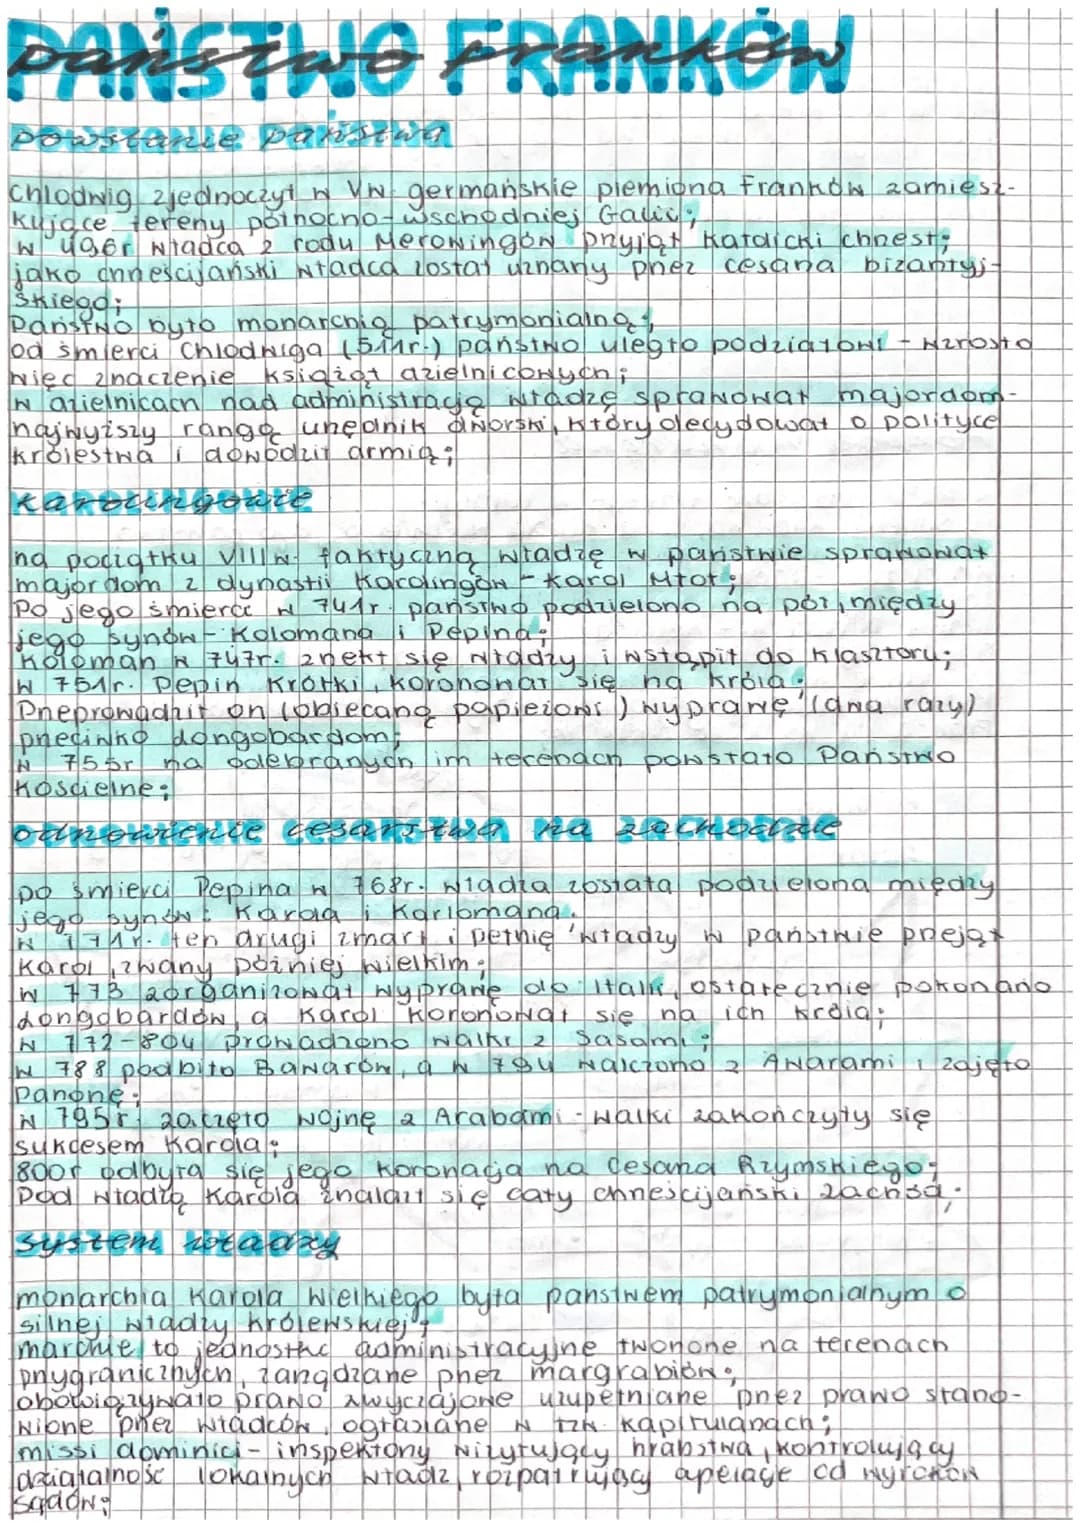 PAŃSTWO FRANKÓW
państwo franków
powstanie państwa
Chlodwig zjednoczył w VW. germańskie plemiona Franków zamiesz-
kujące tereny północno-wschodniej Galii;
w 496r władca z rodu Merowingów przyjął katolicki chrzest;
jako chrześcijański władca został uznany przez cesarza bizantyj-
skiego;
Państwo było monarchią patrymonialną;
od śmierci Chlodwiga (511r.) państwo uległo podziałowi - wzrosło
więc znaczenie książąt dzielnicowych;
w dzielnicach nad administracją władzę sprawował majordom-
najwyższy rangą urzędnik dworski, który decydował o polityce
królestwa i dowodził armią;
karolingowie
na początku VIII w. faktyczną władzę w państwie sprawował
majordom z dynastii Karolingów - Karol Młot;
Po jego śmierci w 741r. państwo podzielono na pół, między
jego synów - Kolomana i Pepina;
Koloman w 747r. zrzekł się władzy i wstąpił do klasztoru;
w 751r. Pepin Krótki, koronował się na króla;
Przeprowadził on (obiecaną papieżowi) wyprawę (dwa razy)
przeciwko dongobardom;
w 755r na odebranych im terenach powstało Państwo
Kościelne;
odnowienie cesarstwa na zachodzie
po śmierci Pepina w 768r. władza została podzielona między
jego synów: Karola i Karlomana.
w 771r. ten drugi zmarł i pełnię władzy w państwie przejął
Karol, zwany później wielkim;
w 773 zorganizował wyprawę do Italii, ostatecznie pokonano
dongobardów, a Karol koronował się na ich króla;
w 772-804 prowadzono walki z Sasami;
w 788 podbito Bawarów, a w 794 walczono z Awarami i zajęto
Panonę;
w 795r zaczęto wojnę z Arabami - walki zakończyły się
sukcesem Karola;
800r odbyła się jego koronacja na Cesarza Rzymskiego;
Pod władzą Karola znalazł się cały chrześcijański zachód.
system władzy
monarchia Karola Wielkiego była państwem patrymonialnym o
silnej władzy królewskiej;
marchie to jednostki administracyjne tworzone na terenach
przygranicznych, zarządzane przez margrabiów;
obowiązywało prawo zwyczajowe uzupełniane przez prawo stano-
wione przez władców, ogłaszane w tzw. kapitularzach;
missi dominici - inspektorzy wizytujący hrabstwa, kontrolujący
działalność lokalnych władz, rozpatrujący apelacje od wyroków
sądów;